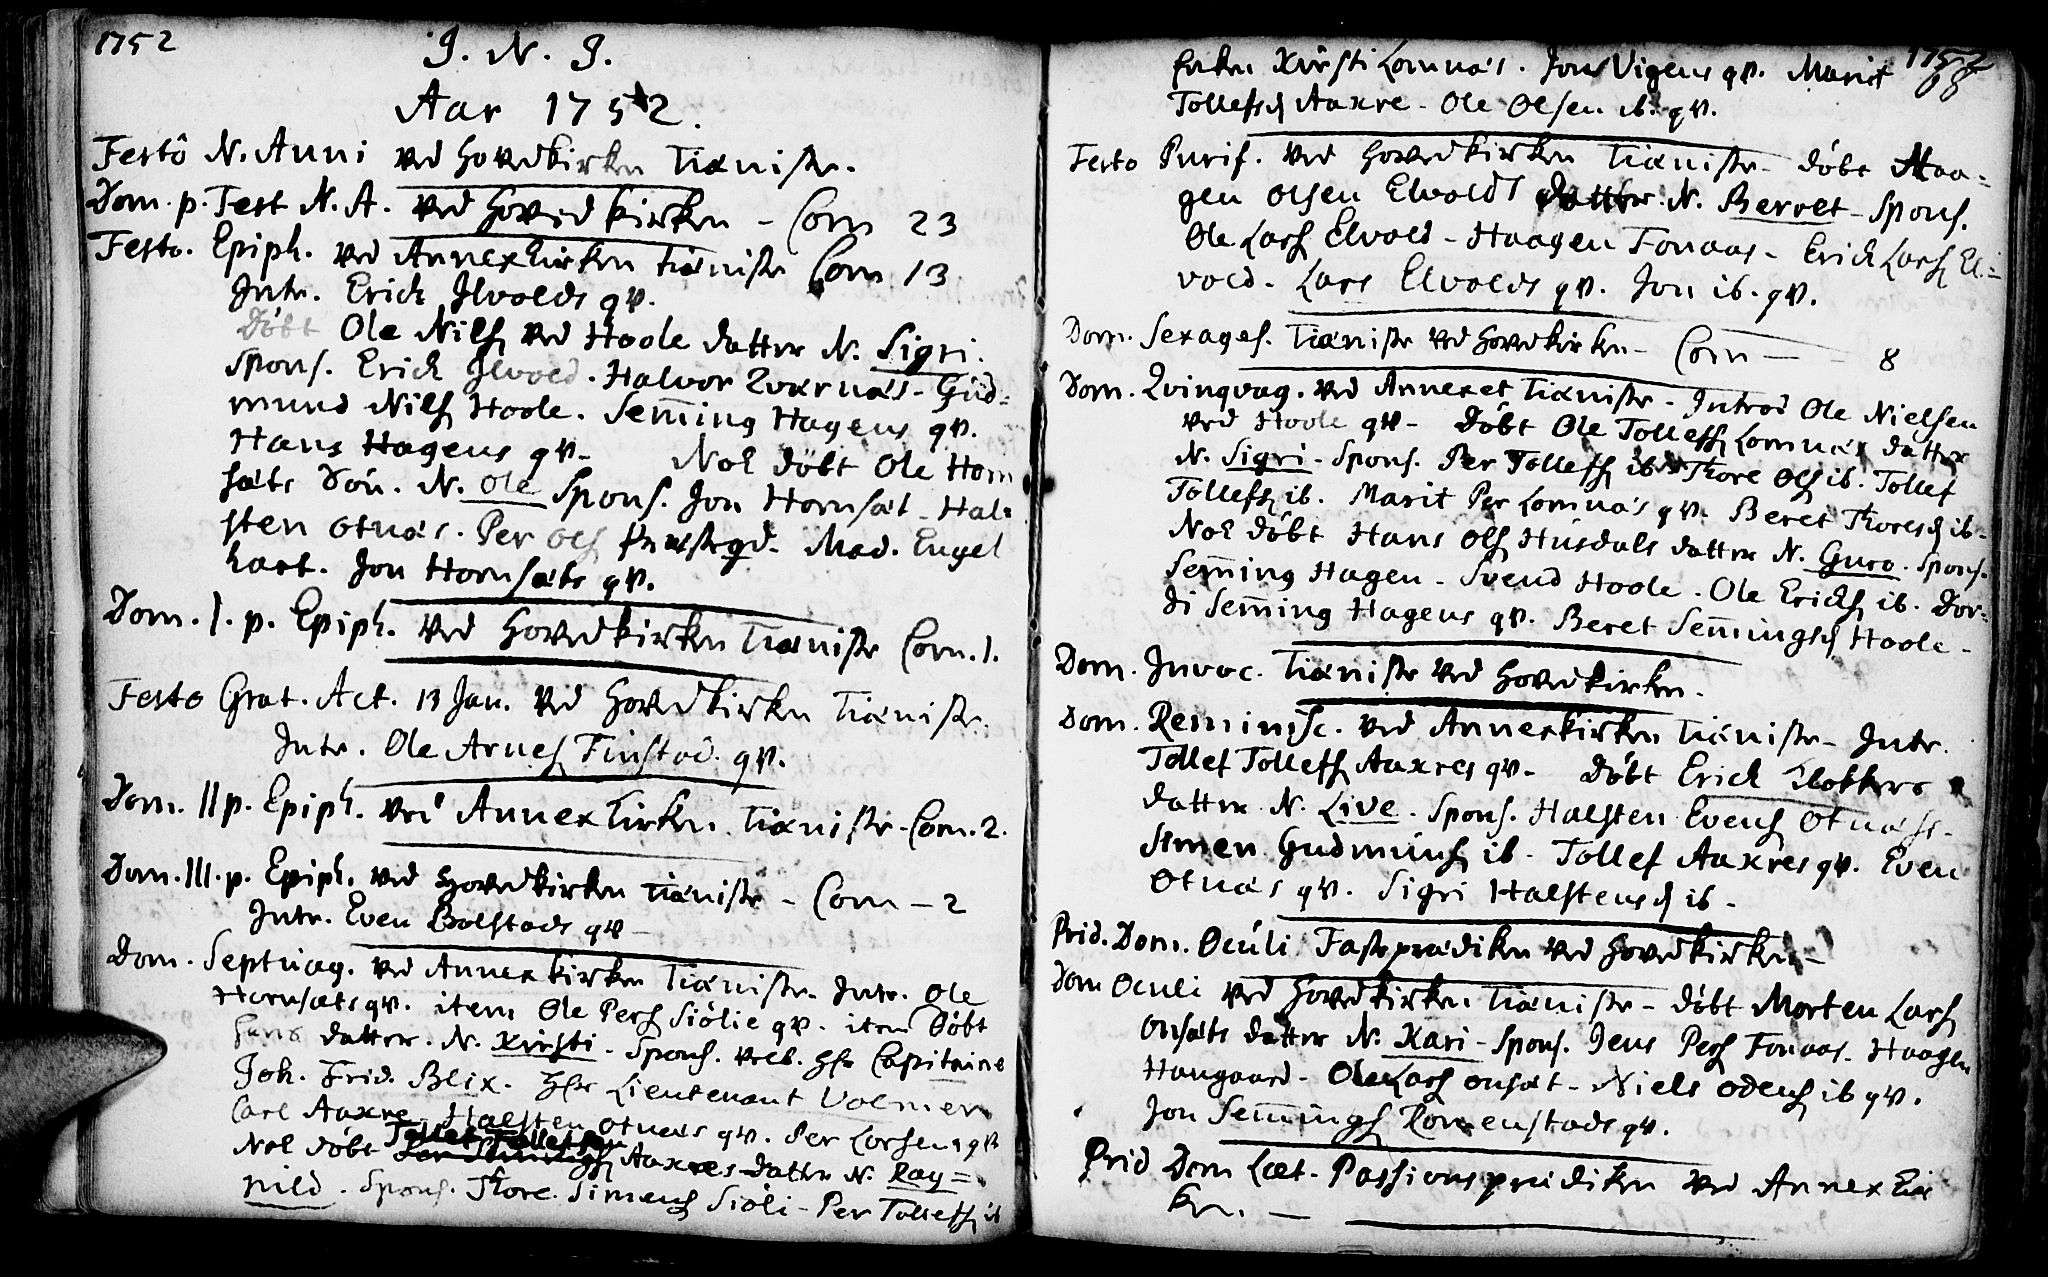 1752
J. N. J.
Aar 1752.
Festô N. Anni ved Hovedkirken Tieniste.
Dom. p. Fest N. A. ved Hovedkirken - Com 23
Festo. Epiph. ved Annexkirken tieniste Com 13
Intr. Erich Ilvolds qv.
Döbt Ole Nilss ved Hoole datter N. Sigri.
Spons. Erich Ilvold. Halvor Qværnæs - Gud=
mund Nilss Hoole. Semming Hagens qv.
Hans Hagens qv - Nok döbt Ole Horn
sæts Sön. N. Ole Spons. Jon Hornsæt - Hal=
sten Otnæs. Per Ols Mad. Engel
hart. Jon Hornsæts qv.
Dom. 1. p. Epiph. ved Hovedkirken Tieniste Com. 1.
Festo Grat. Act. 13 Jan. ved Hovedkirken Tieniste.
Intr. Ole Arnes Finstad. qv.
Dom. II p. Epiph. ved Annexkirken. Tieniste - Com. 2.
Dom. III. p. Epiph. ved Hovedkirken tieniste - Com - 2
Intr. Even Bolstads qv -
Dom. Septuag. ved Annexkirken Tieniste. Intr. Ole
Hornsæts qv. item Ole Pers Siölie qv. item Döbt
hans datter. N. Kirsti - Spons. velb. Hr Capitaine
Joh. Frid. Blix. Hr Lieutenant Volmer
Carl Aaxre - Halsten Otnæs qv. Per Lorsens qv
Nok döbt Tollef Tollefsen Aaxres datter N. Rag=
nild. Spons. Thore Simens Siöli - Per Tollefs ib
1752
68
Enken Kirsti Lomnæs. Jon Vigens qv. Marit
Tollefsd Aaxre - Ole Olsen ib. qv.
Festo Purif. ved Hovedkirken Tieniste - döbt Haa=
gen Olsen Elvolds datter. N. Beret - Spons.
Ole Larss Elvold - Haagen Fonaas - Erich Larss El=
vold. Lars Elvolds qv. Jon ib. qv.
Dom. Sexages. Tieniste ved Hovedkirken - Com - 8
Dom. Qvinqvag. ved Annexet Tieniste - Introd Ole Nielsen
ved Hoole qv - Döbt Ole Tollefs Lomnæs datter
N. Sigri - Spons. Per Tollefs ib. Thore Ols ib. Tollef
Tollefs ib. Marit Per Lomnæs qv. Beret Thoresd ib.
Nok döbt Hans Ols Husdals datter N. Guro. Spons.
Semming Hagen - Svend Hoole. Ole Erichs ib. Dor=
di Semming Hagens qv. Beret Semmingsd Hoole -
Dom. Invoc. Tieniste ved Hovedkirken.
Dom. Reminisc. ved Annexkirken Tieniste - Intr.
Tollef Tollefs Aaxres qv - Döbt Erich Klokkers
datter N. Live. Spons. Halsten Evens Otnæss -
Simen Gudmuns ib - Tollef Aaxres qv. Even
Otnæs qv. Sigri Halstensd ib -
Prid. Dom. Oculi Fasteprædiken ved Hovedkirken -
Dom Oculi ved Hovedkirken Tieniste - döbt Morten Larss
Onsæts datter N. Kari - Spons. Jens Pers Fonaas - Haagen
Haugaard - Ole Larss Onsæt - Niels Odens ib qv.
Jon Semmings Romenstads qv.
Prid Dom Læt. Passionsprædiken ved Annexkir
ken. -